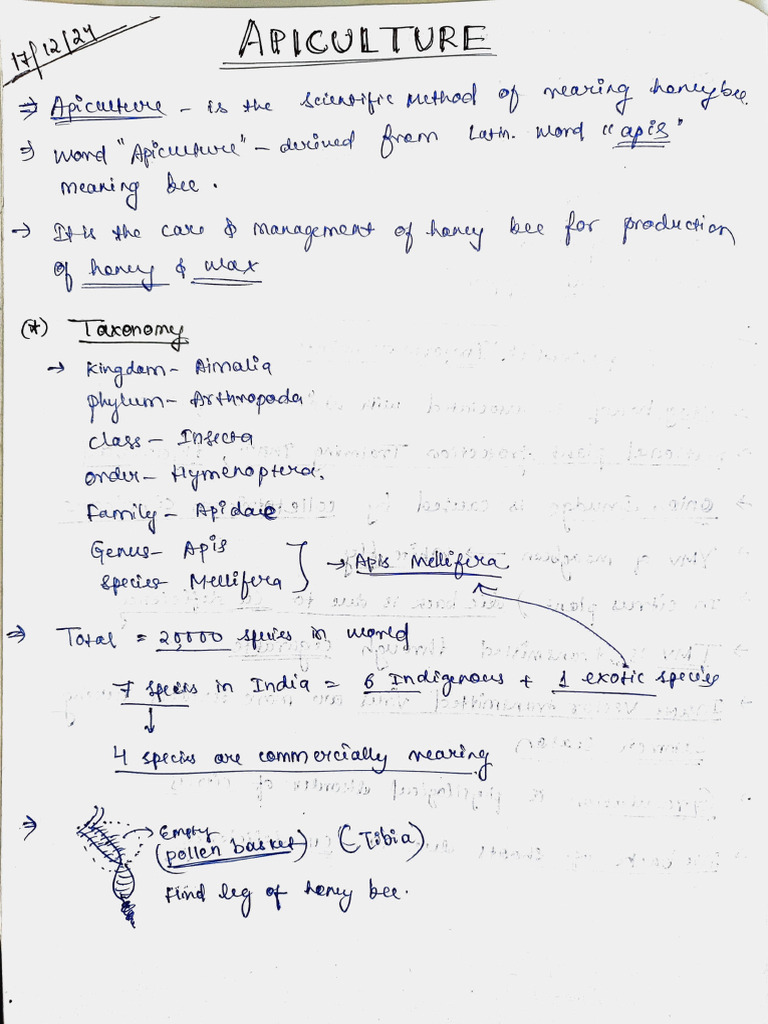 17/12/24
APICULTURE
⇒ Apiculture - is the scientific method of rearing honeybee.
⇒ Word "Apiculture" - derived from Latin. word "apis"
meaning bee.
→ It is the care & management of honey bee for production
of honey & wax
(*) Taxonomy
→ Kingdom - Aimalia
phylum - Arthropoda
class - Insecta
order - Hymenoptera.
Family - Apidae
Genus - Apis
species - Mellifera
→ Apis Mellifera
⇒ Total = 20,000 species in world
7 species in India = 6 Indigenous + 1 exotic species
4 species are commercially rearing
⇒ → Empty
(pollen basket) (Tibia)
Hind leg of honey bee.